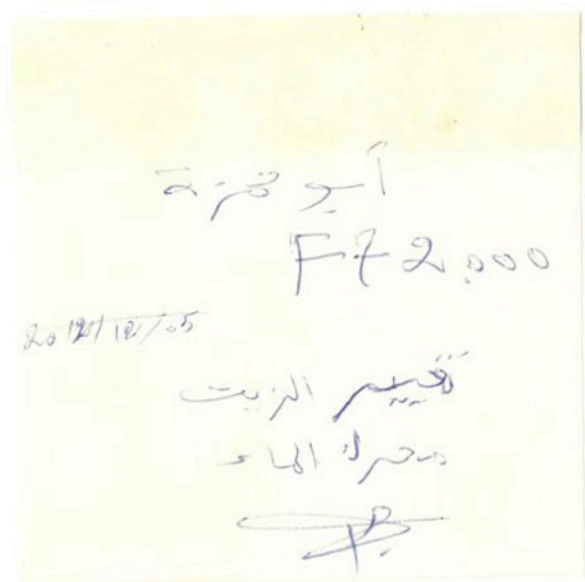 أبو حمزة
F72.000
2012/12/05
تغيير الزيت
محرك الماء